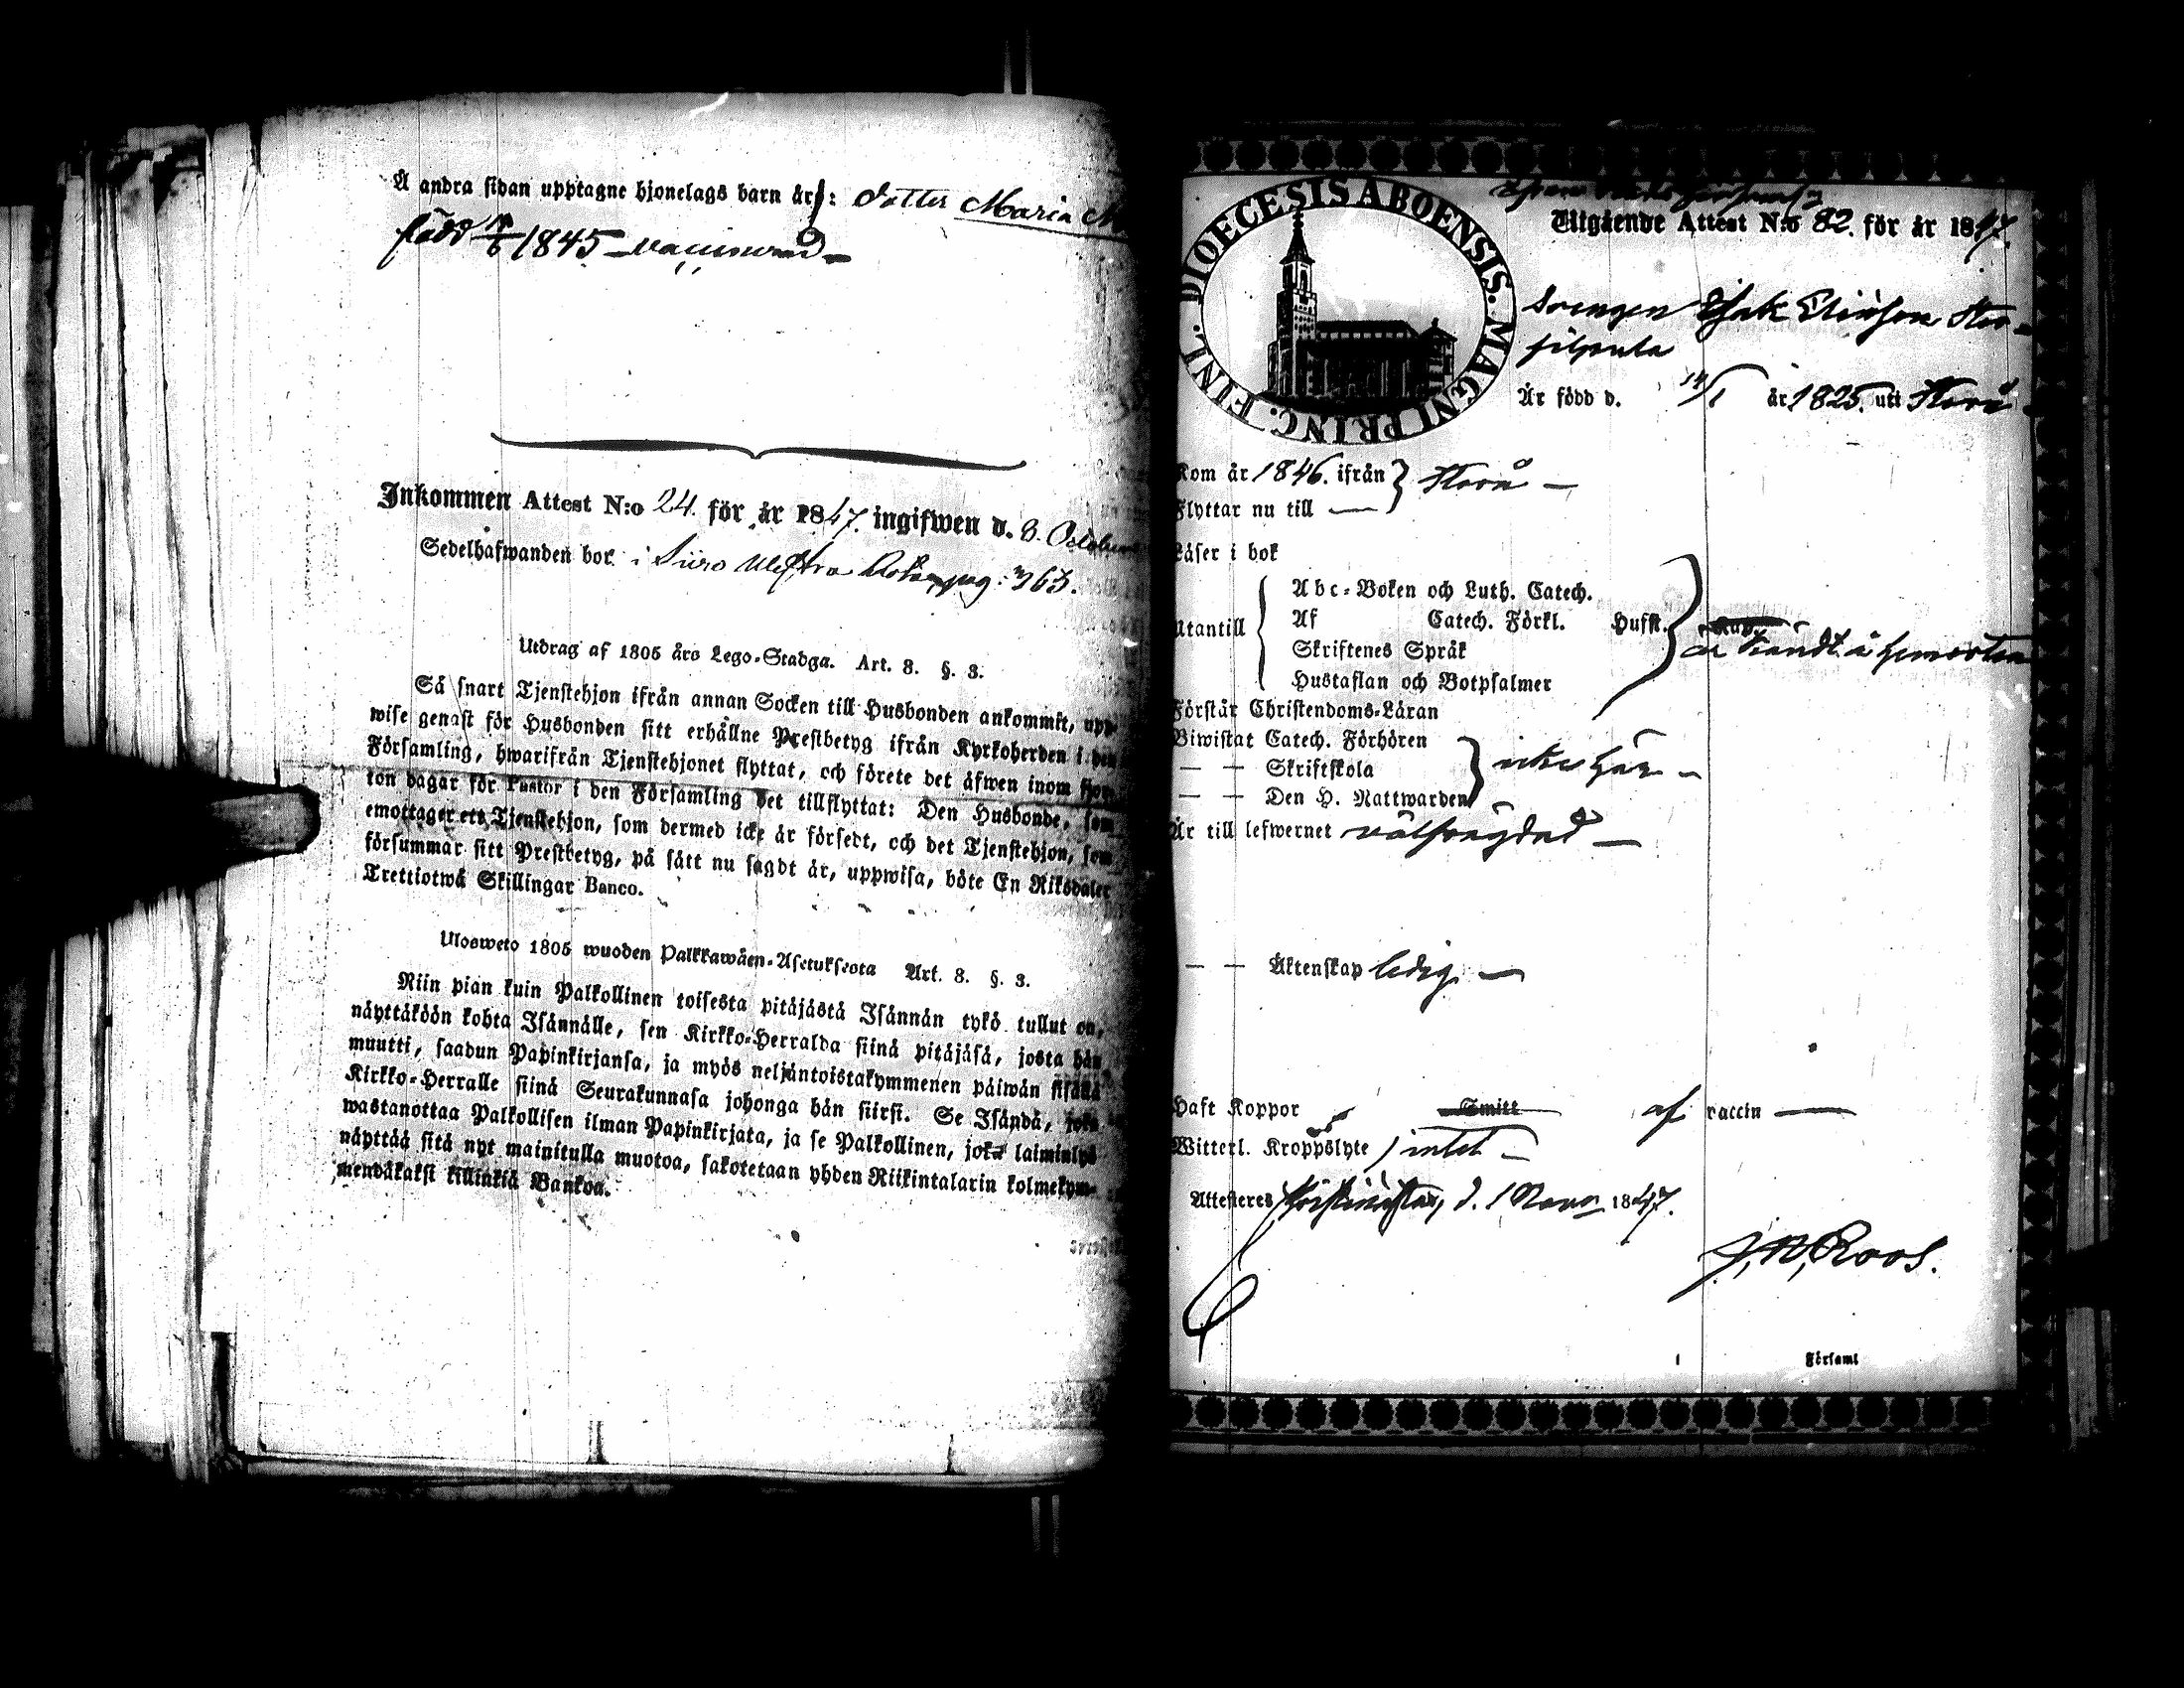 Å andra sidan upptagne hjonelags barn är: dotter Maria M
född 14/6 1845 – vaccinerad –
Inkommen Attest N:o 24. för år 1847. ingifwen d. 8. October
Sedelhafwanden bor i Siuro pag: 363.
Utdrag af 1805 års Lego-Stadga. Art. 8. §. 3.
Så snart Tjenstehjon ifrån annan Socken till Husbonden ankommit, upp-
wise genast för Husbonden sitt erhållne Prestbetyg ifrån Kyrkoherden i den
Församling, hwarifrån Tjenstehjonet flyttat, och förete det äfwen inom fjor-
ton dagar för Pastor i den Församling det tillflyttat: Den Husbonde, som
emottager ett Tjenstehjon, som dermed icke är försedt, och det Tjenstehjon, som
försummar sitt Prestbetyg, på sätt nu sagdt är, uppwisa, böte En Riksdaler
Trettiotwå Skillingar Banco.
Ulosweto 1805 wuoden Palkkawäen-Asetuksesta Art. 8. §. 3.
Niin pian kuin Palkollinen toisesta pitäjästä Isännän tykö tullut on,
näyttäköön kohta Isännälle, sen Kirkko-Herralda siinä pitäjäsä, josta hän
muutti, saadun Papinkirjansa, ja myös neljäntoistakymmenen päiwän sisällä
Kirkko-Herralle siinä Seurakunnasa johonga hän siirsi. Se Isändä, joka
wastanottaa Palkollisen ilman Papinkirjata, ja se Palkollinen, joka laiminlyö
näyttää sitä nyt mainitulla muotoa, sakotetaan yhden Riikintalarin kolmekym-
mendäkaksi killinkiä Bankoa.
DIOECESIS ABOENSIS. MAGNI PRINC. FINL.
Utgående Attest N:o 82. för år 1847.
Drengen Isak Eliasson Stor-
Är född d. 14/1 år 1825. uti Storå
Kom år 1846. ifrån } Storå –
Flyttar nu till —
Läser i bok
Utantill { Abc-Boken och Luth. Catech.
Af Catech. Förkl. Husst.
är kändt å hemorten
Skriftenes Språk
Hustaflan och Botpsalmer
Förstår Christendoms-Läran
Biwistat Catech. Förhören
— — Skriftskola } icke här –
— — Den H. Nattwarden
Är till lefwernet välfrägdad —
— — Äktenskap ledig —
Haft Koppor Smitt af vaccin —
Witterl. Kroppslyte } intet –
Attesteres Christinestad, d. 1 Novr 1847.
J. N. Roos.
Församl